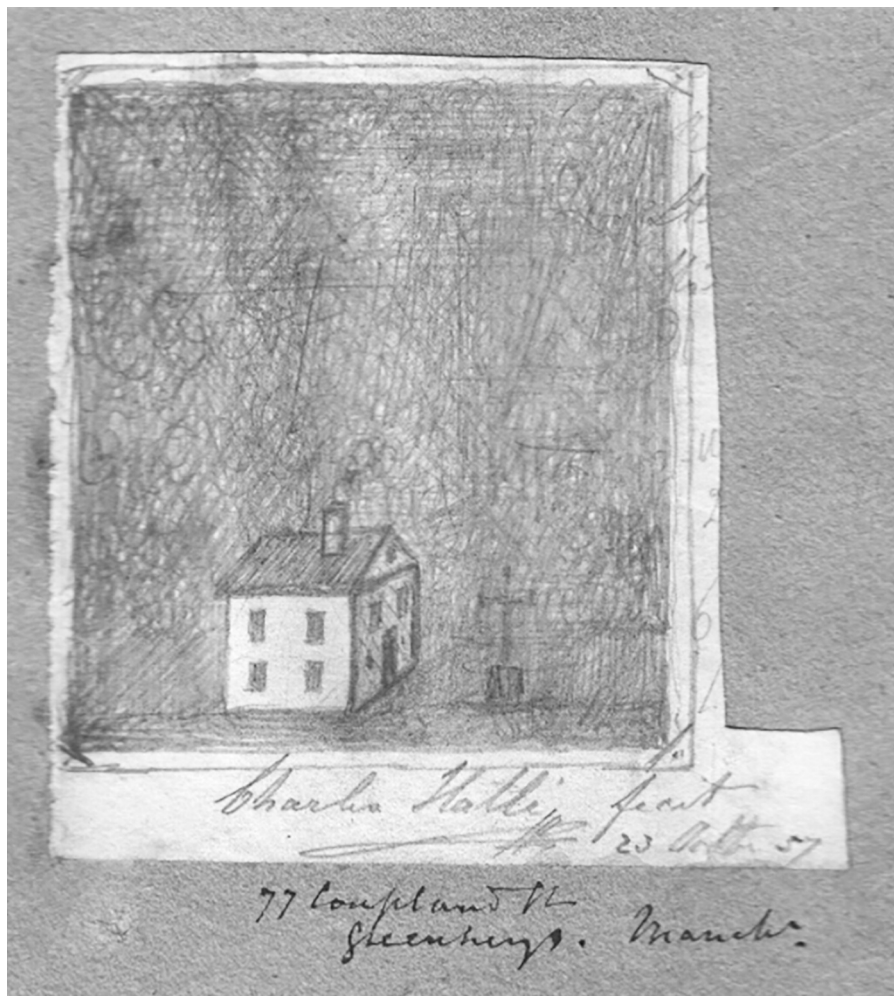 Charles Hallé fecit
23 Octbr 57
77 Coupland St
Greenheys. Manchr.